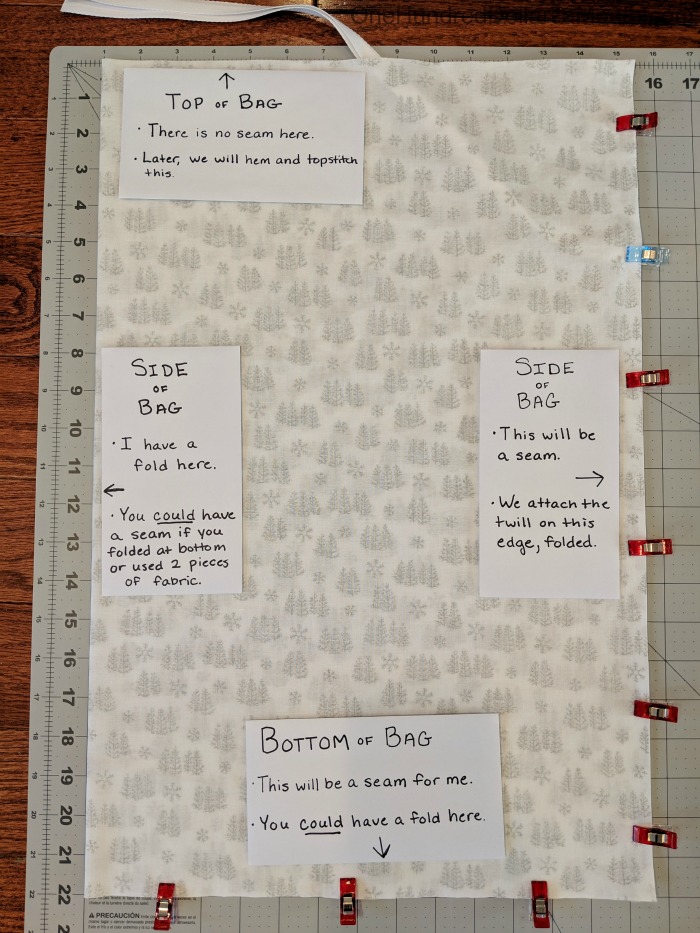 OneHundred
1 2 3 4 5 6 7 9 10 11 12 13 14 15 16 17
↑
TOP OF BAG
· There is no seam here.
· Later, we will hem and topstitch
this.
SIDE
OF
BAG
· I have a
fold here.
←
· You could have
a seam if you
folded at bottom
or used 2 pieces
of fabric.
SIDE
OF
BAG
· This will be
a seam.
→
· We attach the
twill on this
edge, folded.
BOTTOM OF BAG
· This will be a seam for me.
· You could have a fold here.
↓
1
2
3
4
5
6
7
8
9
10
11
12
13
14
15
16
17
18
19
20
21
22
16 17
PRECAUCIÓN